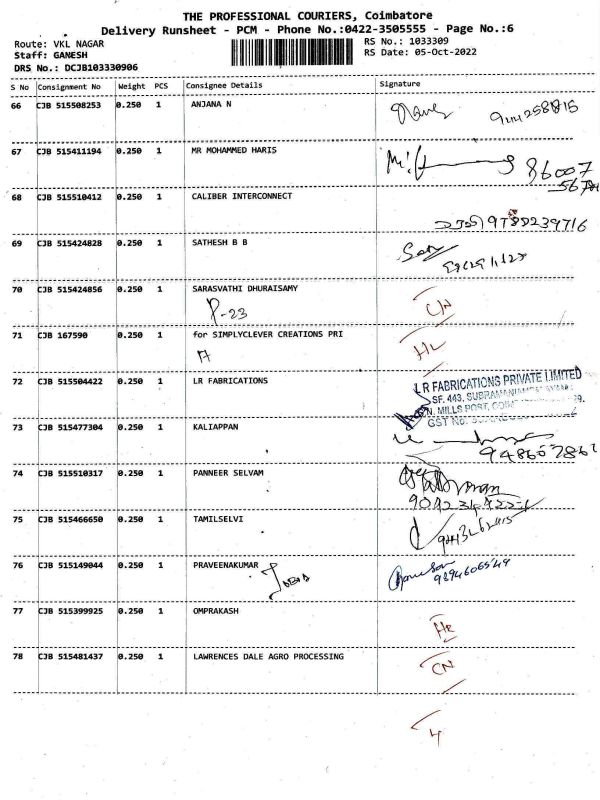 THE PROFESSIONAL COURIERS, Coimbatore
Delivery Runsheet - PCM - Phone No.:0422-3505555 - Page No.:6
Route: VKL NAGAR
RS No.: 1033309
Staff: GANESH
RS Date: 05-Oct-2022
DRS No.: DCJB103330906
S No Consignment No Weight PCS Consignee Details Signature
66 CJB 515508253 0.250 1 ANJANA N
67 CJB 515411194 0.250 1 MR MOHAMMED HARIS
86007
68 CJB 515510412 0.250 1 CALIBER INTERCONNECT
9789239716
69 CJB 515424828 0.250 1 SATHESH B B
70 CJB 515424856 0.250 1 SARASVATHI DHURAISAMY
P-23
CN
71 CJB 167590 0.250 1 for SIMPLYCLEVER CREATIONS PRI
HL
72 CJB 515504422 0.250 1 LR FABRICATIONS
LR FABRICATIONS PRIVATE LIMITED
SF. 443,
N. MILLS POST,
GST No.
73 CJB 515477304 0.250 1 KALIAPPAN
74 CJB 515510317 0.250 1 PANNEER SELVAM
75 CJB 515466650 0.250 1 TAMILSELVI
76 CJB 515149044 0.250 1 PRAVEENAKUMAR
9894606549
77 CJB 515399925 0.250 1 OMPRAKASH
78 CJB 515481437 0.250 1 LAWRENCES DALE AGRO PROCESSING
CN
4